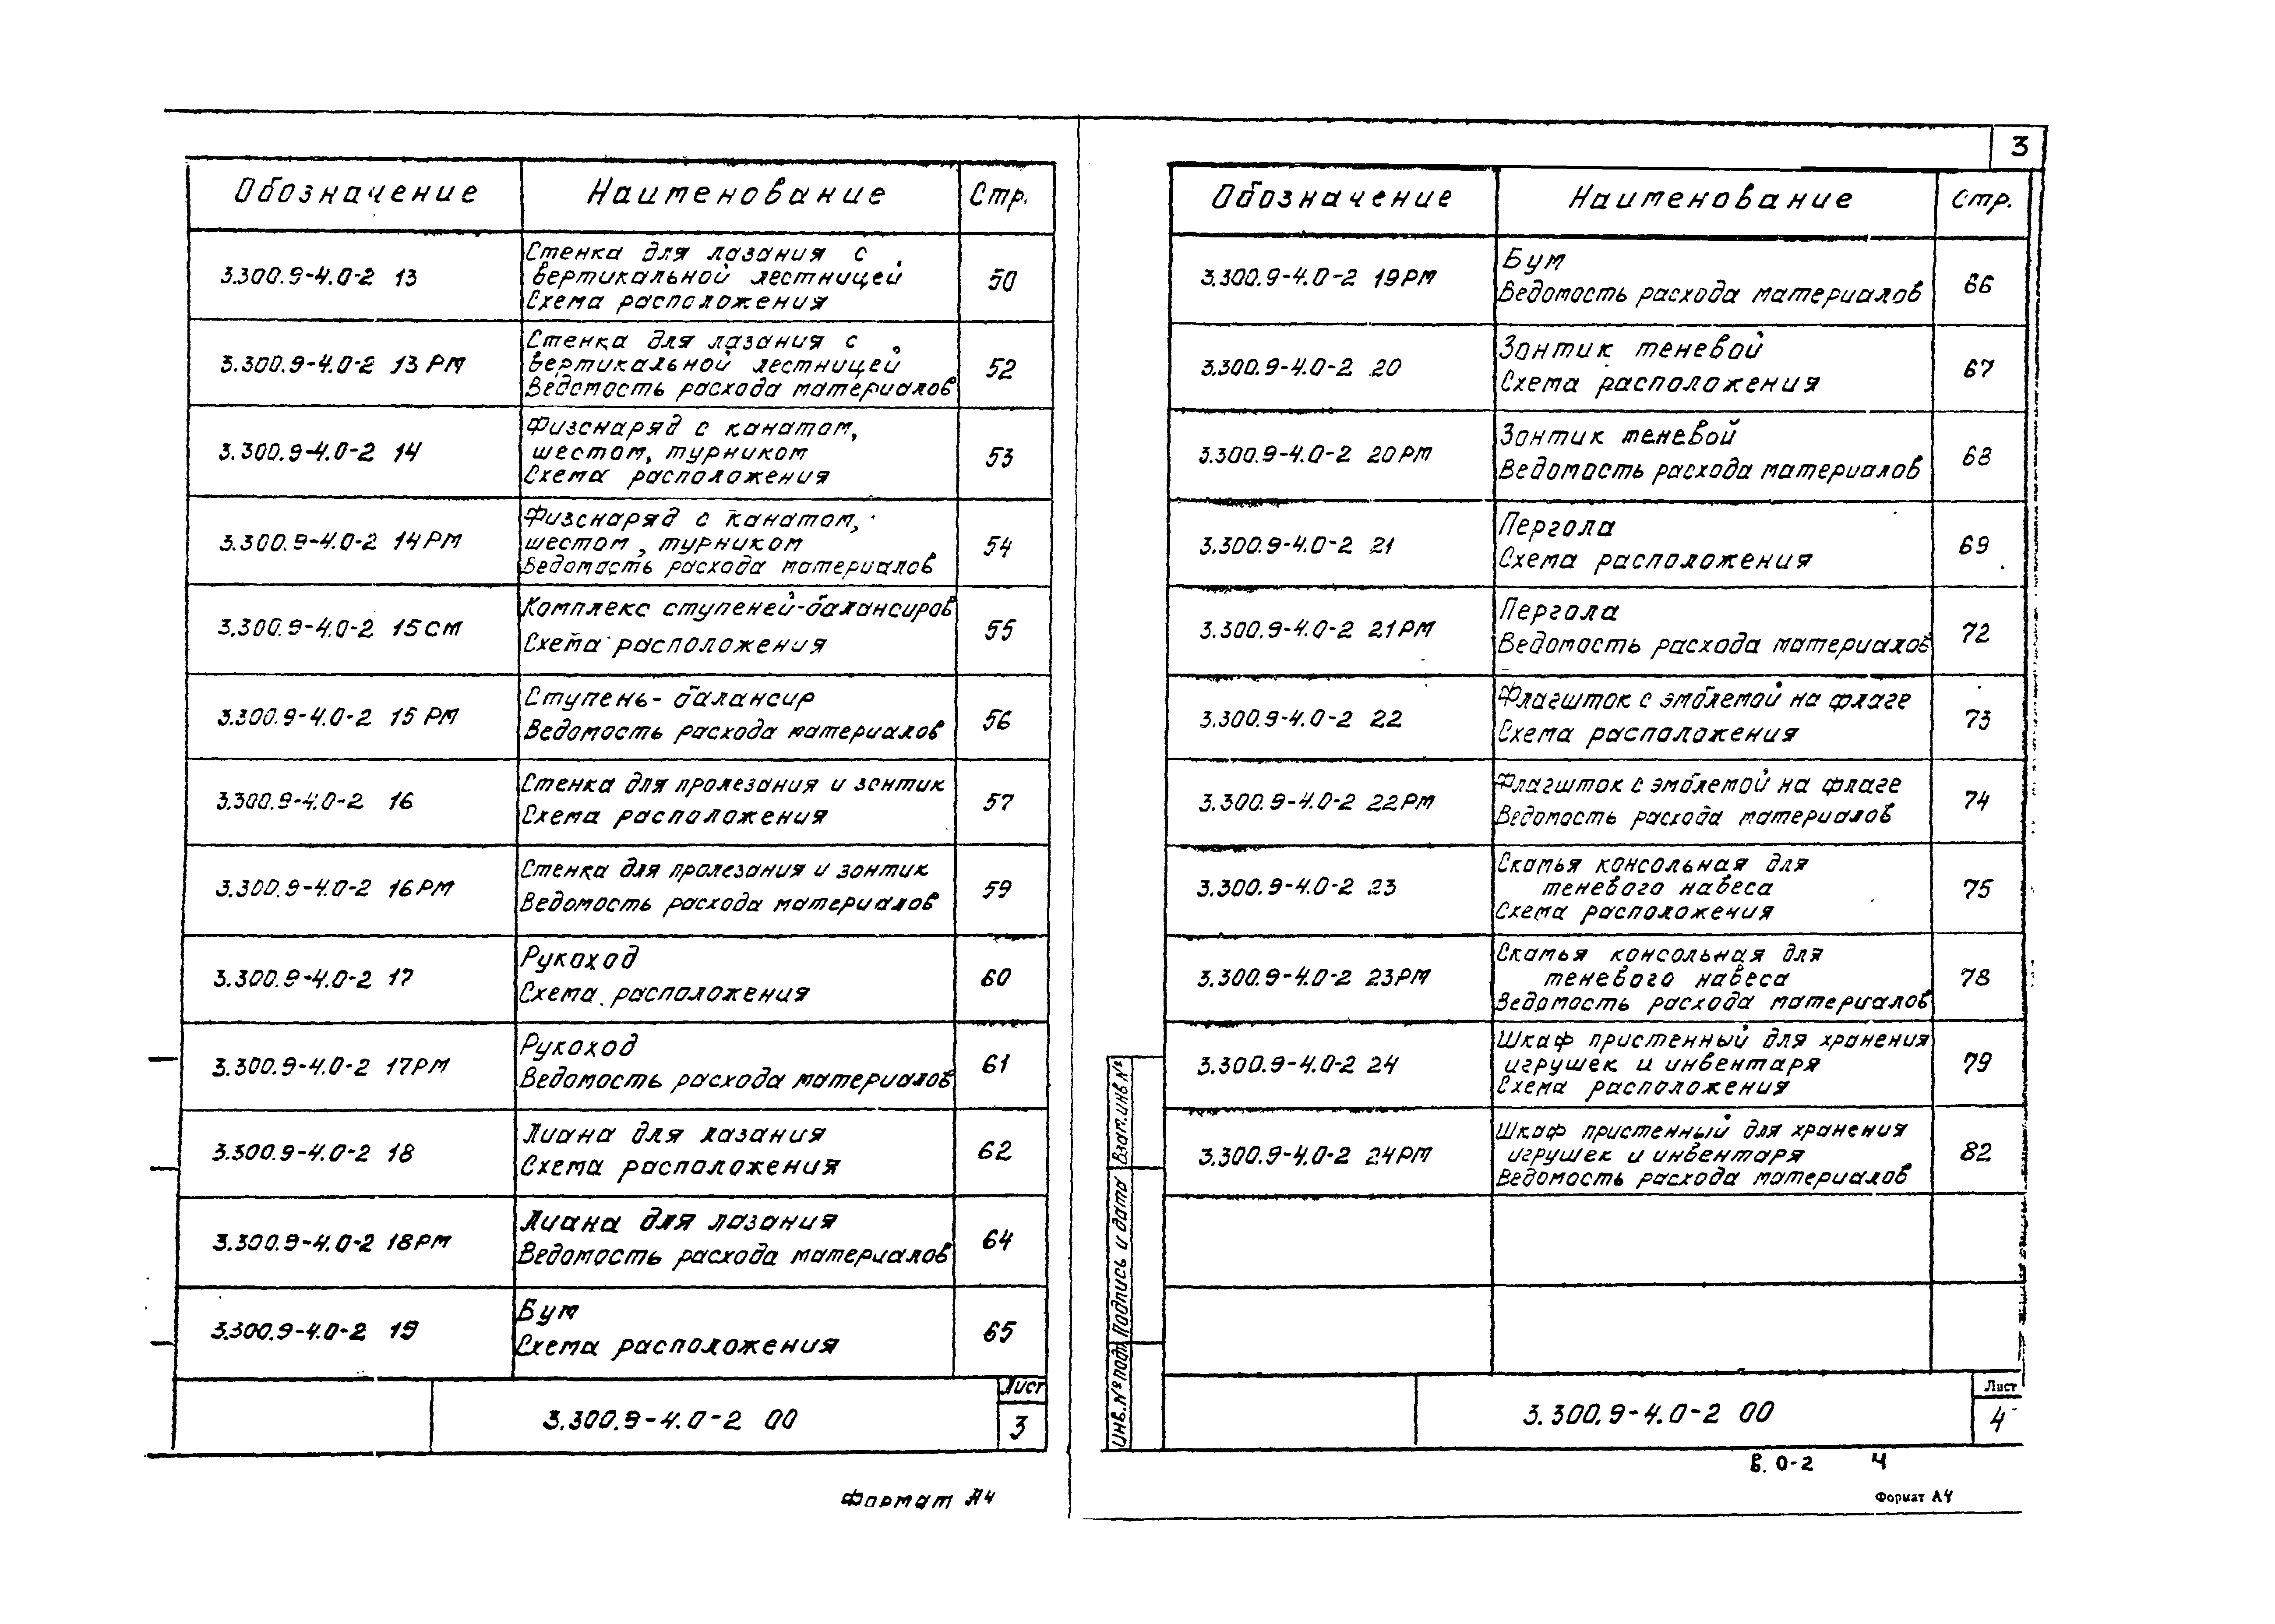 Обозначение Наименование Стр.
3.300.9-4.0-2 13 Стенка для лазания с
вертикальной лестницей
Схема расположения 50
3.300.9-4.0-2 13РМ Стенка для лазания с
вертикальной лестницей
Ведомость расхода материалов 52
3.300.9-4.0-2 14 Физснаряд с канатом,
шестом, турником
Схема расположения 53
3.300.9-4.0-2 14РМ Физснаряд с канатом,
шестом, турником
Ведомость расхода материалов 54
3.300.9-4.0-2 15СМ Комплекс ступеней-балансиров
Схема расположения 55
3.300.9-4.0-2 15РМ Ступень-балансир
Ведомость расхода материалов 56
3.300.9-4.0-2 16 Стенка для пролезания и зонтик
Схема расположения 57
3.300.9-4.0-2 16РМ Стенка для пролезания и зонтик
Ведомость расхода материалов 59
3.300.9-4.0-2 17 Рукоход
Схема расположения 60
3.300.9-4.0-2 17РМ Рукоход
Ведомость расхода материалов 61
3.300.9-4.0-2 18 Лиана для лазания
Схема расположения 62
3.300.9-4.0-2 18РМ Лиана для лазания
Ведомость расхода материалов 64
3.300.9-4.0-2 19 Бум
Схема расположения 65
3.300.9-4.0-2 00 Лист
3
Формат А4
3
Обозначение Наименование Стр.
3.300.9-4.0-2 19РМ Бум
Ведомость расхода материалов 66
3.300.9-4.0-2 20 Зонтик теневой
Схема расположения 67
3.300.9-4.0-2 20РМ Зонтик теневой
Ведомость расхода материалов 68
3.300.9-4.0-2 21 Пергола
Схема расположения 69
3.300.9-4.0-2 21РМ Пергола
Ведомость расхода материалов 72
3.300.9-4.0-2 22 Флагшток с эмблемой на флаге
Схема расположения 73
3.300.9-4.0-2 22РМ Флагшток с эмблемой на флаге
Ведомость расхода материалов 74
3.300.9-4.0-2 23 Скамья консольная для
теневого навеса
Схема расположения 75
3.300.9-4.0-2 23РМ Скамья консольная для
теневого навеса
Ведомость расхода материалов 78
3.300.9-4.0-2 24 Шкаф пристенный для хранения
игрушек и инвентаря
Схема расположения 79
3.300.9-4.0-2 24РМ Шкаф пристенный для хранения
игрушек и инвентаря
Ведомость расхода материалов 82
Взам.инв №
Подпись и дата
Инв.№ подл
3.300.9-4.0-2 00 Лист
4
В. 0-2 4
Формат А4